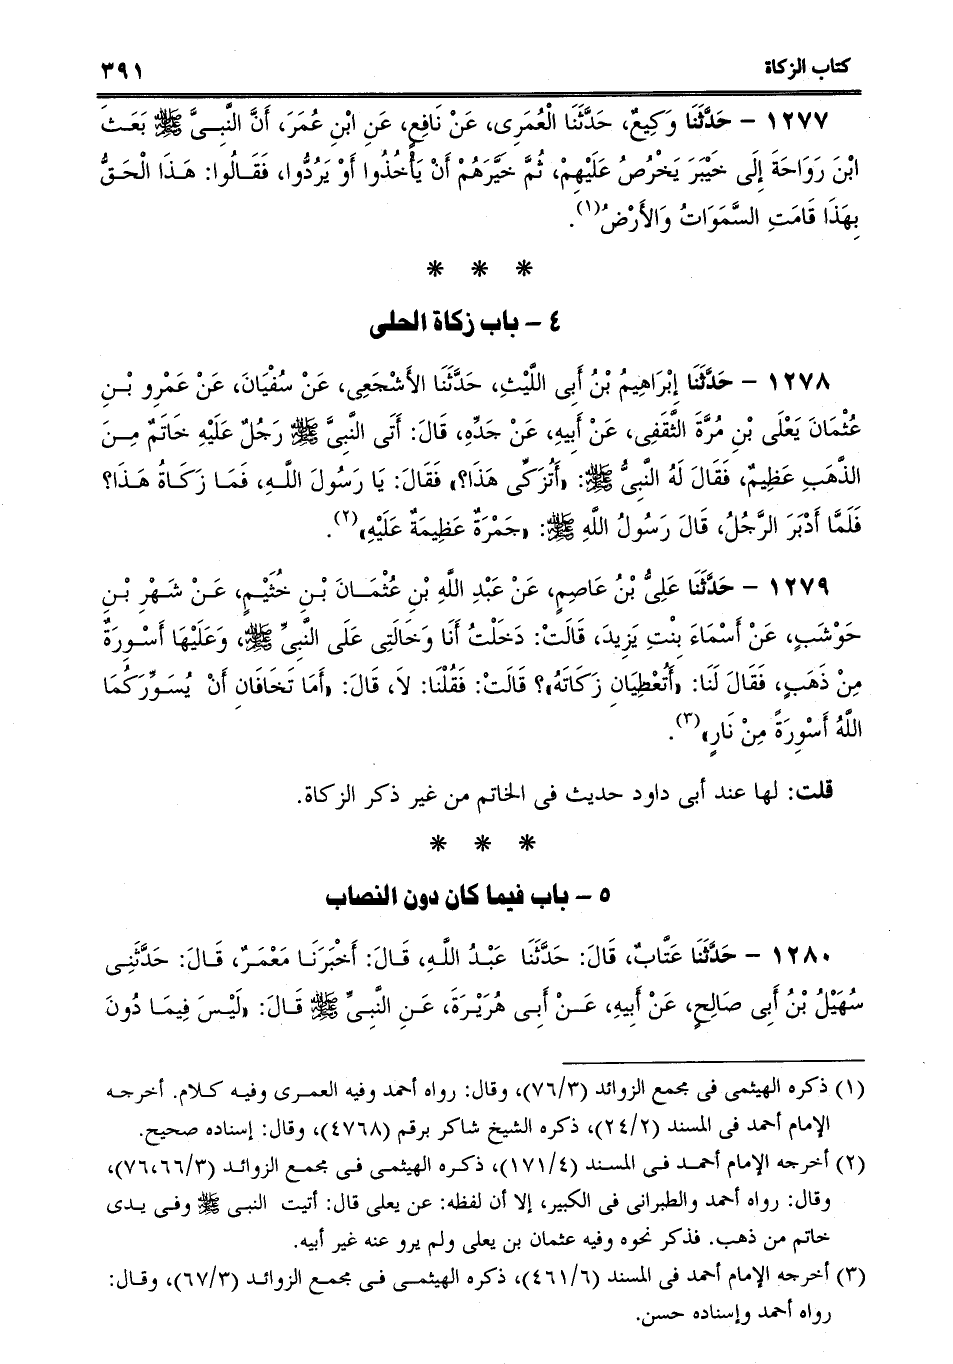 كتاب الزكاة ٣٩١
١٢٧٧ - حَدَّثَنَا وَكِيعٌ، حَدَّثَنَا الْعُمَرِى، عَنْ نَافِعٍ، عَنِ ابْنِ عُمَرَ، أَنَّ النَّبِىَّ ﷺ بَعَثَ
ابْنَ رَوَاحَةَ إِلَى خَيْبَرَ يَخْرُصُ عَلَيْهِمْ، ثُمَّ خَيَّرَهُمْ أَنْ يَأْخُذُوا أَوْ يَرُدُّوا، فَقَالُوا: هَذَا الْحَقُّ
بِهَذَا قَامَتِ السَّمَوَاتُ وَالأَرْضُ(١).
* * *
٤ - باب زكاة الحلى
١٢٧٨ - حَدَّثَنَا إِبْرَاهِيمُ بْنُ أَبِى اللَّيْثِ، حَدَّثَنَا الأَشْجَعِى، عَنْ سُفْيَانَ، عَنْ عَمْرِو بْنِ
عُثْمَانَ يَعْلَى بْنِ مُرَّةَ الثَّقَفِى، عَنْ أَبِيهِ، عَنْ جَدِّهِ، قَالَ: أَتَى النَّبِىَّ ﷺ رَجُلٌ عَلَيْهِ خَاتَمٌ مِنَ
الذَّهَبِ عَظِيمٌ، فَقَالَ لَهُ النَّبِىُّ ﷺ: «أَتُزَكِّى هَذَا؟» فَقَالَ: يَا رَسُولَ اللَّهِ، فَمَا زَكَاةُ هَذَا؟
فَلَمَّا أَدْبَرَ الرَّجُلُ، قَالَ رَسُولُ اللَّهِ ﷺ: «جَمْرَةٌ عَظِيمَةٌ عَلَيْهِ»(٢).
١٢٧٩ - حَدَّثَنَا عَلِىُّ بْنُ عَاصِمٍ، عَنْ عَبْدِ اللَّهِ بْنِ عُثْمَانَ بْنِ خُثَيْمٍ، عَنْ شَهْرِ بْنِ
حَوْشَبٍ، عَنْ أَسْمَاءَ بِنْتِ يَزِيدَ، قَالَتْ: دَخَلْتُ أَنَا وَخَالَتِى عَلَى النَّبِىِّ ﷺ، وَعَلَيْهَا أَسْوِرَةٌ
مِنْ ذَهَبٍ، فَقَالَ لَنَا: «أَتُعْطِيَانِ زَكَاتَهُ»؟ قَالَتْ: فَقُلْنَا: لاَ، قَالَ: «أَمَا تَخَافَانِ أَنْ يُسَوِّرَكُمَا
اللَّهُ أَسْوِرَةً مِنْ نَارٍ»(٣).
قلت: لها عند أبى داود حديث فى الخاتم من غير ذكر الزكاة.
* * *
٥ - باب فيما كان دون النصاب
١٢٨٠ - حَدَّثَنَا عَتَّابٌ، قَالَ: حَدَّثَنَا عَبْدُ اللَّهِ، قَالَ: أَخْبَرَنَا مَعْمَرٌ، قَالَ: حَدَّثَنِى
سُهَيْلُ بْنُ أَبِى صَالِحٍ، عَنْ أَبِيهِ، عَنْ أَبِى هُرَيْرَةَ، عَنِ النَّبِىِّ ﷺ قَالَ: «لَيْسَ فِيمَا دُونَ
(١) ذكره الهيثمى فى مجمع الزوائد (٧٦/٣)، وقال: رواه أحمد وفيه العمرى وفيه كلام. أخرجه
الإمام أحمد فى المسند (٢٤/٢)، ذكره الشيخ شاكر برقم (٤٧٦٨)، وقال: إسناده صحيح.
(٢) أخرجه الإمام أحمد فى المسند (١٧١/٤)، ذكره الهيثمى فى مجمع الزوائد (٧٦،٦٦/٣)،
وقال: رواه أحمد والطبرانى فى الكبير، إلا أن لفظه: عن يعلى قال: أتيت النبى ﷺ وفى يدى
خاتم من ذهب. فذكر نحوه وفيه عثمان بن يعلى ولم يرو عنه غير أبيه.
(٣) أخرجه الإمام أحمد فى المسند (٤٦١/٦)، ذكره الهيثمى فى مجمع الزوائد (٦٧/٣)، وقال:
رواه أحمد وإسناده حسن.